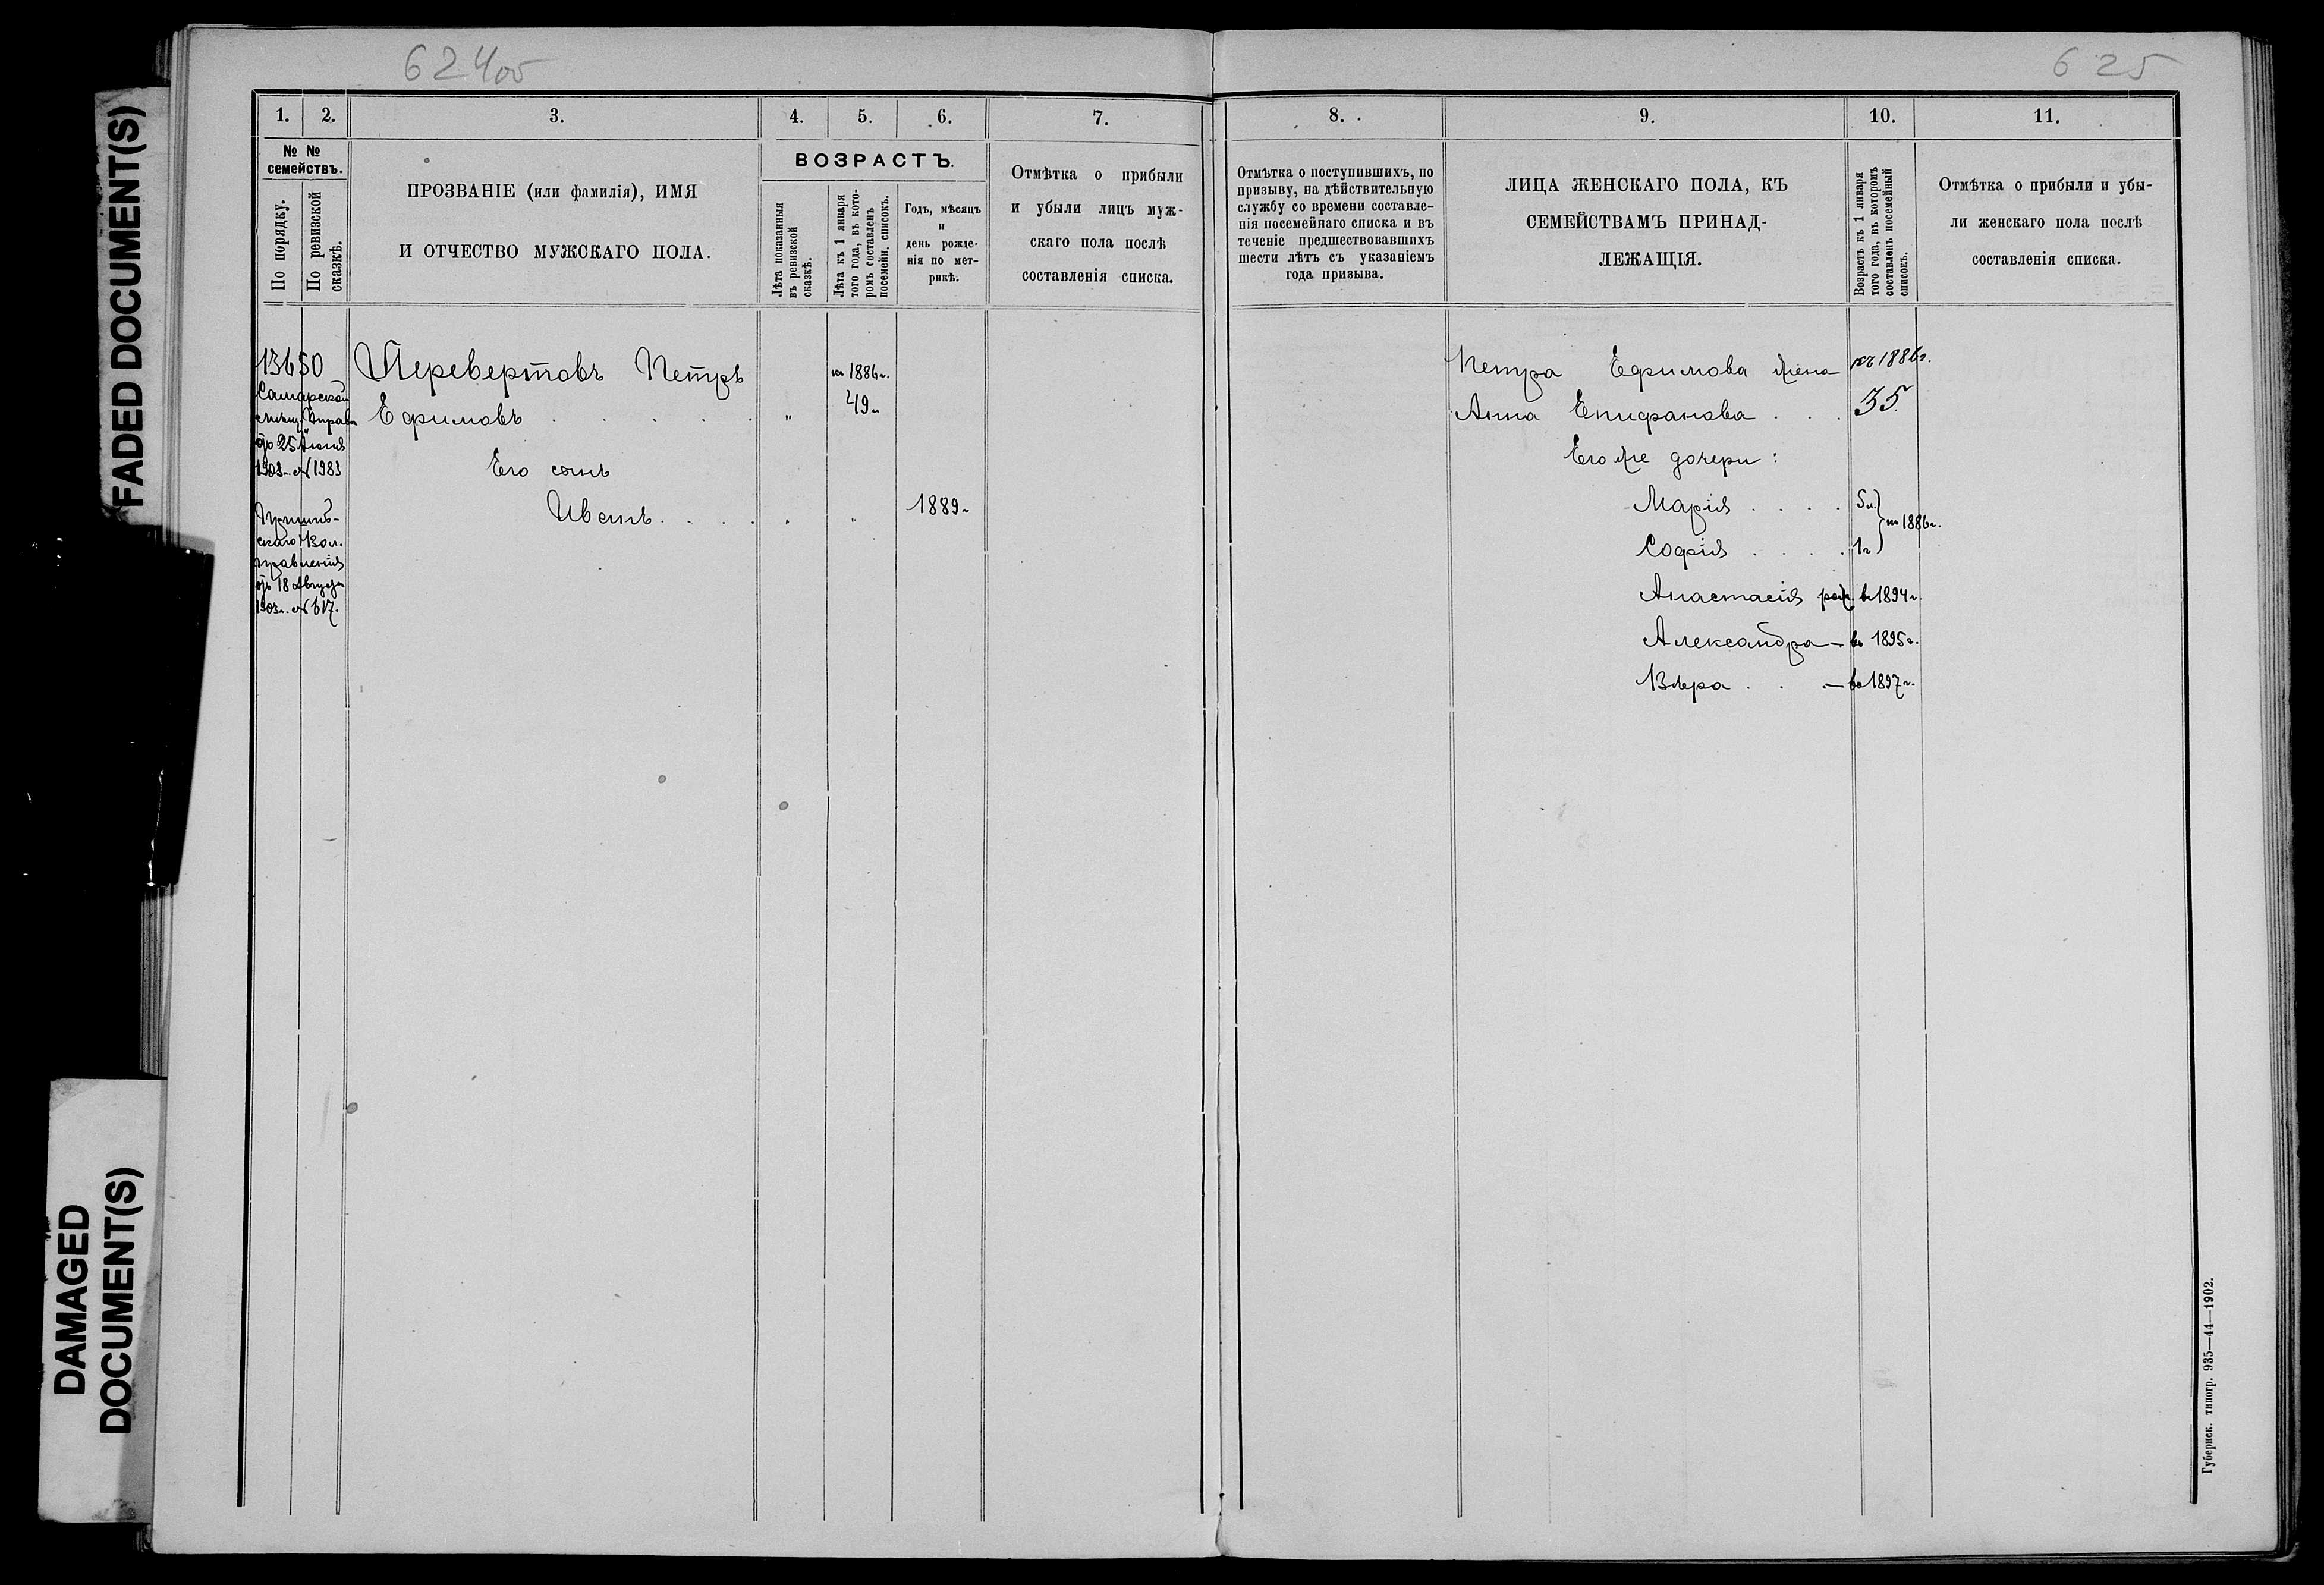 FADED DOCUMENT(S)
DAMAGED
DOCUMENT(S)
624об
1. 2. 3. 4. 5. 6. 7.
№ № семействъ.
По порядку.
По ревизской сказкѣ.
ПРОЗВАНІЕ (или фамилія), ИМЯ
И ОТЧЕСТВО МУЖСКАГО ПОЛА.
ВОЗРАСТЪ.
Лѣта показанныя
въ ревизской
сказкѣ.
Лѣта къ 1 января
того года, въ кото-
ромъ составленъ
посемейн. списокъ.
Годъ, мѣсяцъ
и
день рожде-
нія по мет-
рикѣ.
Отмѣтка о прибыли
и убыли лицъ муж-
скаго пола послѣ
составленія списка.
13650
Самарской
мѣщ. Управы
отъ 25 Іюня
1903 г. № 1983
скаго Вол.
правленія
отъ 18 Августа
1903 г. № 617.
Перевертовъ Петръ
къ 1886 г.
Ефимовъ . . . . . „ 49 л.
Его сынъ
Иванъ . . . . „ „ 1889 г.
625
8. 9. 10. 11.
Отмѣтка о поступившихъ, по
призыву, на дѣйствительную
службу со времени составле-
нія посемейнаго списка и въ
теченіе предшествовавшихъ
шести лѣтъ съ указаніемъ
года призыва.
ЛИЦА ЖЕНСКАГО ПОЛА, КЪ
СЕМЕЙСТВАМЪ ПРИНАД-
ЛЕЖАЩІЯ.
Возрастъ къ 1 января
того года, въ которомъ
составленъ посемейный
списокъ.
Отмѣтка о прибыли и убы-
ли женскаго пола послѣ
составленія списка.
Петра Ефимова жена къ 1886 г.
Анна Епифанова . . . 35.
Его же дочери:
Марія . . . . 5 л.
къ 1886 г.
Софія . . . . 1 г.
Анастасія род. въ 1894 г.
Александра — въ 1895 г.
Вѣра . . . — въ 1897 г.
Губернск. типогр. 935—44—1902.